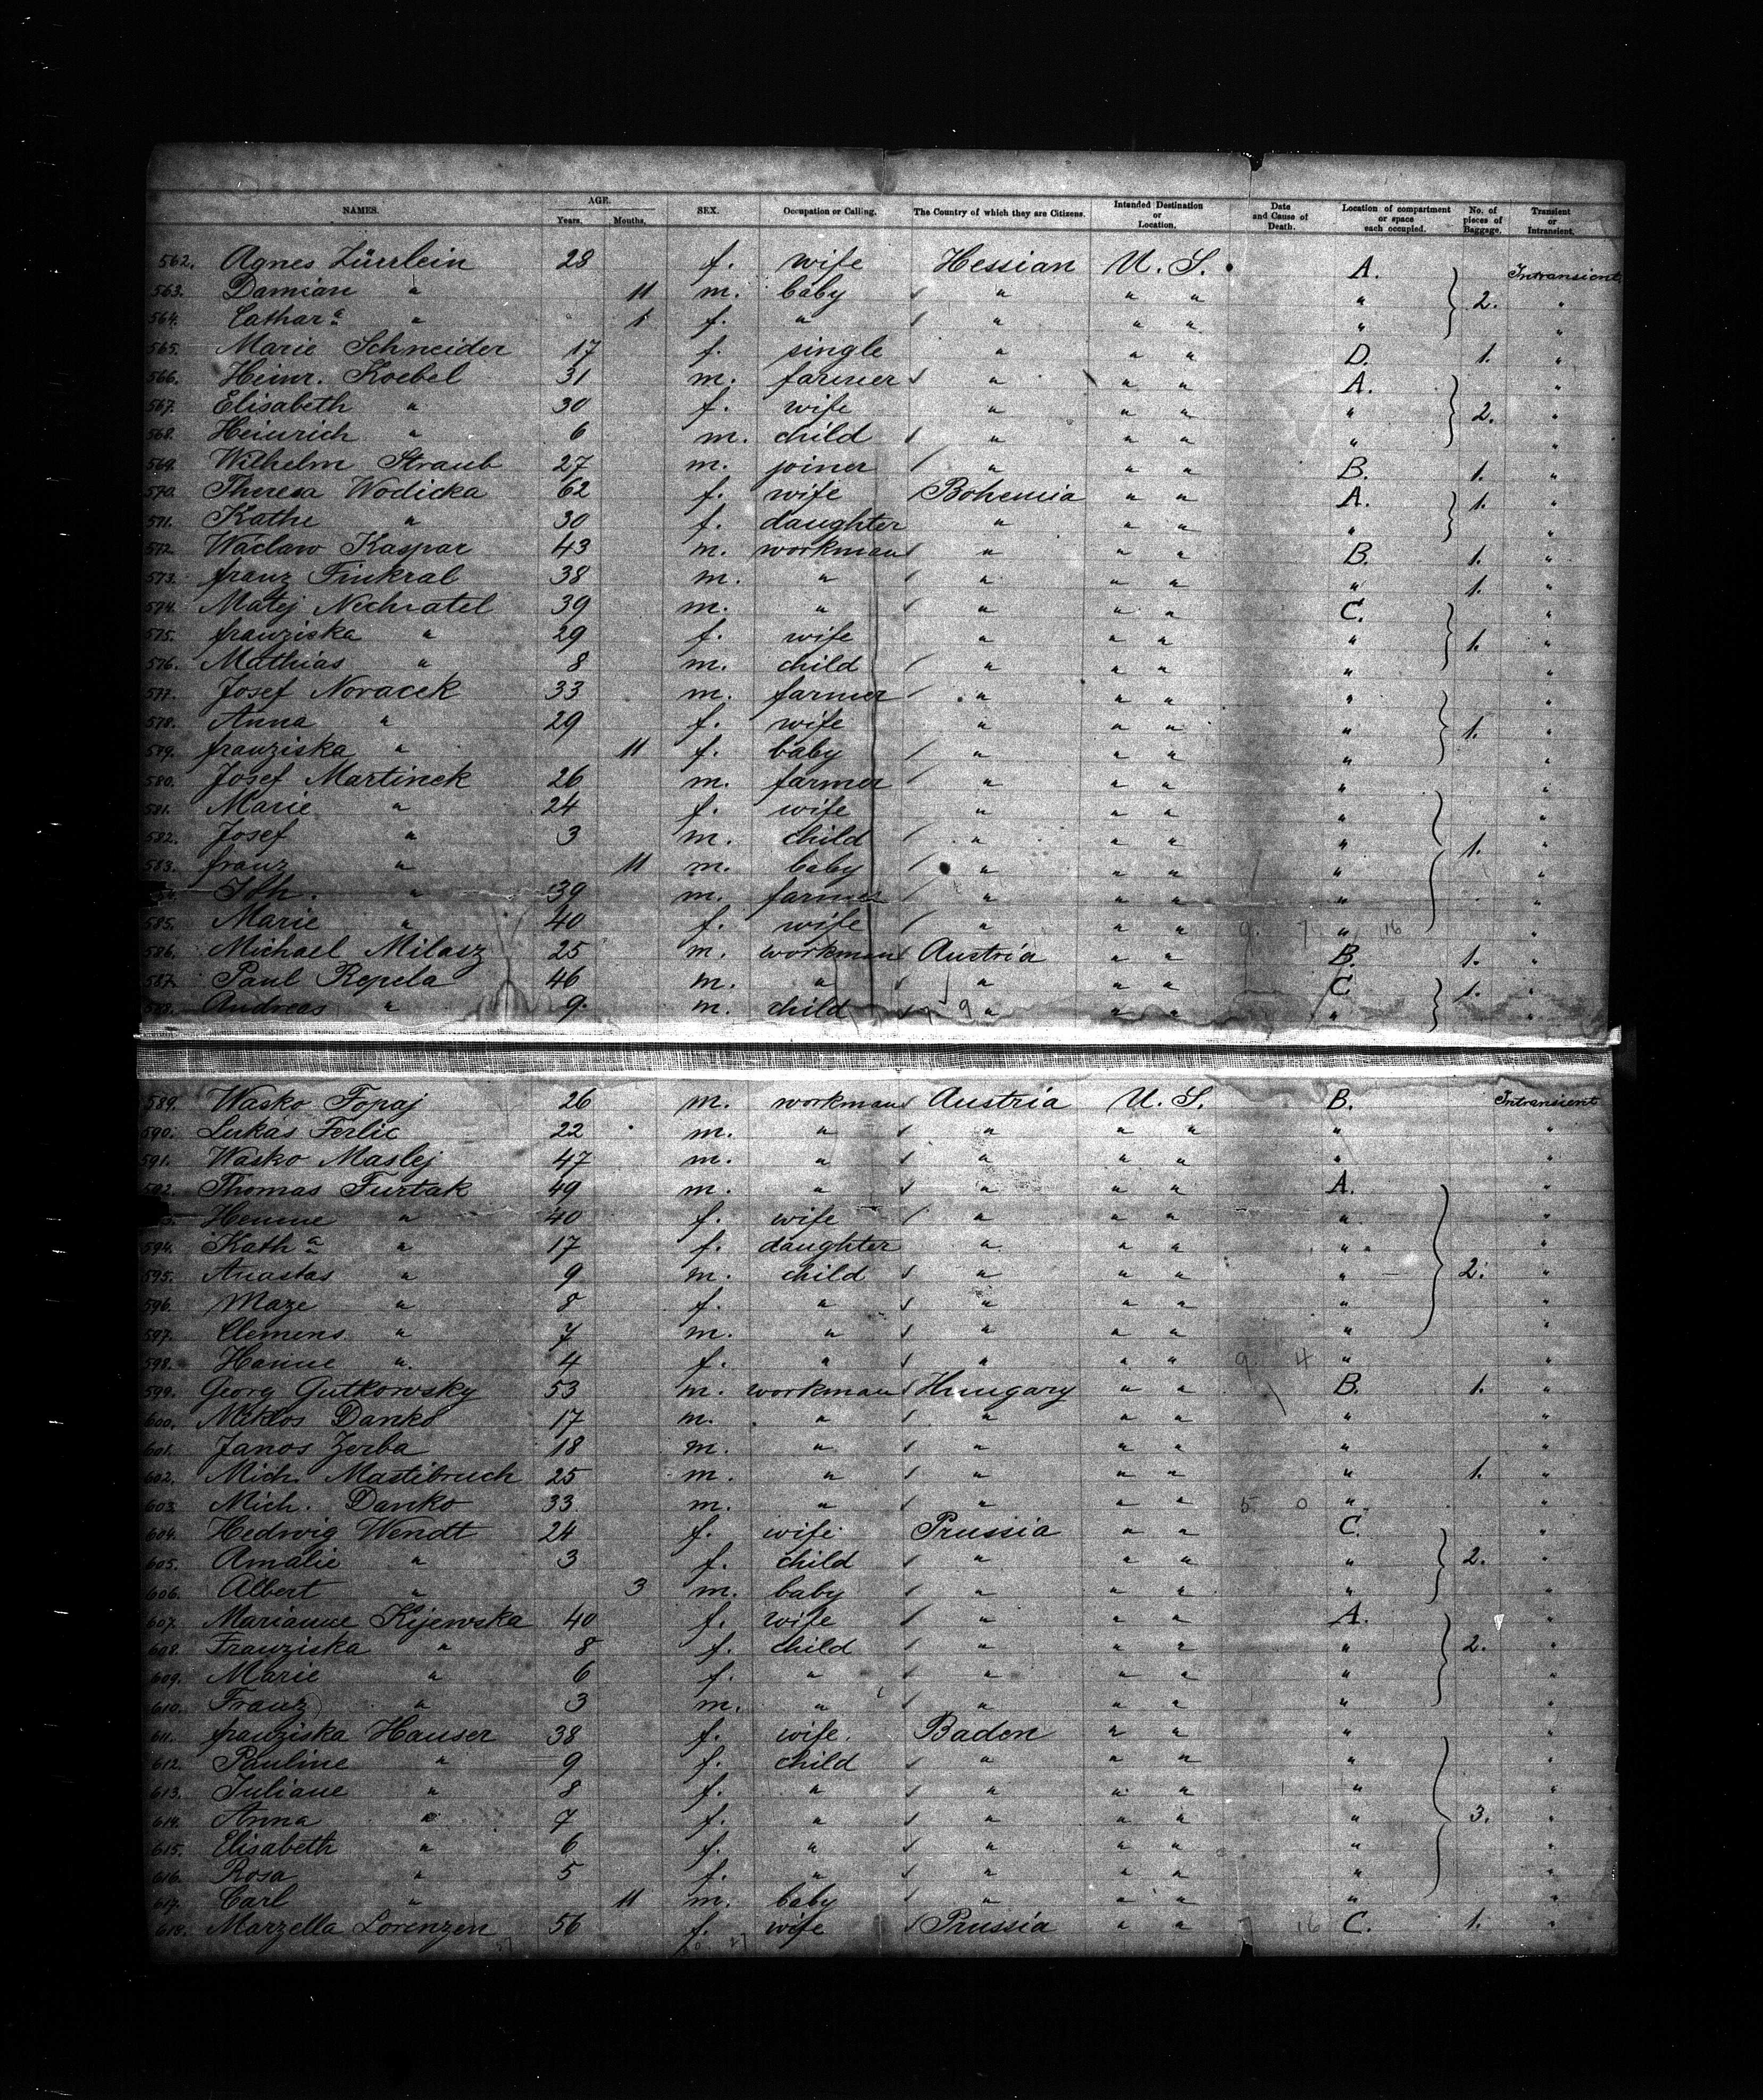 NAMES. AGE. Years. Months. SEX. Occupation or Calling. The Country of which they are Citizens. Intended Destination or Location. Date and Cause of Death. Location of compartment or space each occupied. No. of pieces of Baggage. Transient or Intransient.
562. Agnes Zürrlein 28 f. wife Hessian U. S. A. Intransient
563. Damian " 11 m. baby " " " " 2. "
564. Cathar.a " 1 f. " " " " " "
565. Marie Schneider 17 f. single " " " D. 1. "
566. Heinr. Koebel 31 m. farmer " " " A. "
567. Elisabeth " 30 f. wife " " " " 2. "
568. Heinrich " 6 m. child " " " " "
569. Wilhelm Straub 27 m. joiner " " " B. 1. "
570. Theresa Wodicka 62 f. wife Bohemia " " A. 1. "
571. Kathe " 30 f. daughter " " " " "
572. Waclaw Kaspar 43 m. workman " " " B. 1. "
573. franz Finkral 38 m. " " " " " 1. "
574. Matej Nechvatel 39 m. " " " " C. "
575. franziska " 29 f. wife " " " " 1. "
576. Mathias " 8 m. child " " " " "
577. Josef Novacek 33 m. farmer " " " " "
578. Anna " 29 f. wife " " " " 1. "
579. franziska " 11 f. baby " " " " "
580. Josef Martinek 26 m. farmer " " " " "
581. Marie " 24 f. wife " " " " "
582. Josef " 3 m. child " " " " 1. "
583. franz " 11 m. baby " " " " "
Joh. " 39 m. farmer " " " " "
585. Marie " 40 f. wife " " " 9. 7 " 16 "
586. Michael Milasz 25 m. workman Austria " " B. 1. "
587. Paul Repela 46 m. " " " " C. 1. "
588. Andreas " 9 m. child " " " " "
589. Wasko Topaj 26 m. workman Austria U. S. B. Intransient
590. Lukas Ferlic 22 m. " " " " " "
591. Wasko Maslej 47 m. " " " " " "
592. Thomas Furtak 49 m. " " " " A. "
Henne " 40 f. wife " " " " "
594. Kath.a " 17 f. daughter " " " " "
595. Anastas " 9 m. child " " " " 2. "
596. Maze " 8 f. " " " " " "
597. Clemens " 7 m. " " " " " "
598. Hanne " 4 f. " " " " 9 4 " "
599. Georg Gutkowsky 53 m. workman Hungary " " B. 1. "
600. Miklos Danko 17 m. " " " " " "
601. Janos Zerba 18 m. " " " " " "
602. Mich. Mastibruch 25 m. " " " " " 1. "
603. Mich. Danko 33 m. " " " " 5 0 " "
604. Hedwig Wendt 24 f. wife Prussia " " C. "
605. Amalie " 3 f. child " " " " 2. "
606. Albert " 3 m. baby " " " " "
607. Marianne Kijewska 40 f. wife " " " A. "
608. Franziska " 8 f. child " " " " 2. "
609. Marie " 6 f. " " " " " "
610. Franz " 3 m. " " " " " "
611. franziska Hauser 38 f. wife. Baden " " " "
612. Pauline " 9 f. child " " " " "
613. Juliane " 8 f. " " " " " "
614. Anna " 7 f. " " " " " 3. "
615. Elisabeth " 6 f. " " " " " "
616. Rosa " 5 f. " " " " " "
617. Carl " 11 m. baby " " " " "
618. Marzella Lorenzen 56 f. wife Prussia " " 7 16 C. 1. "